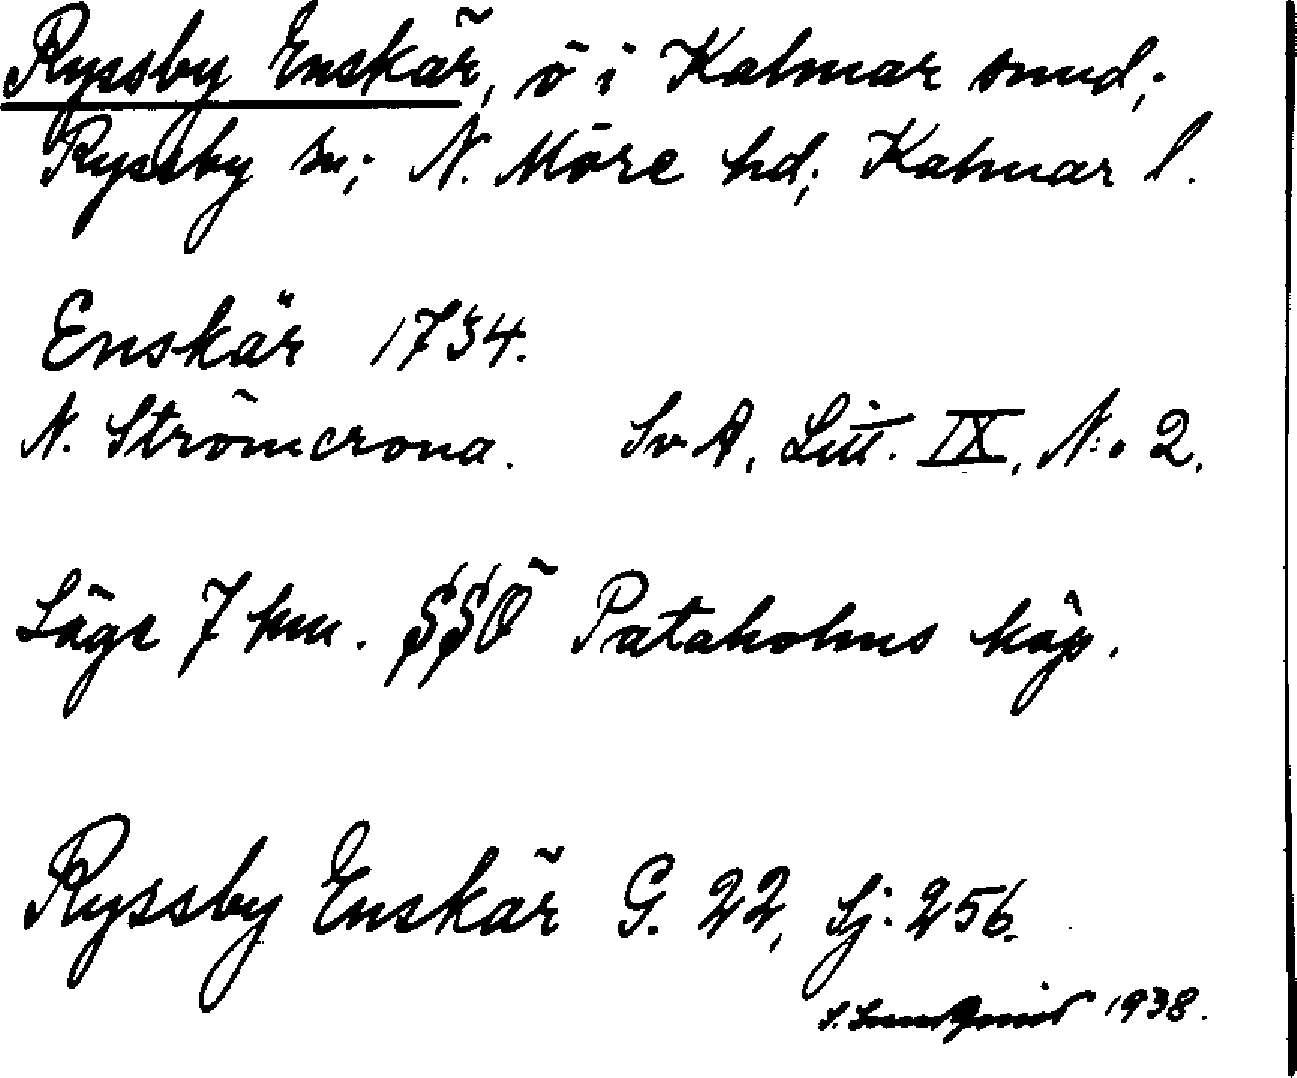 Ryssby Enskär, ö i Kalmar sund;
Ryssby sn; N. Möre hd; Kalmar l.
Enskär 1734.
N. Strömcrona. Sv A, Litt. IX, N:o 2.
Läge 7 km. SSÖ Pataholms köp.
Ryssby Enskär G. 22, Sj: 256.
1938.